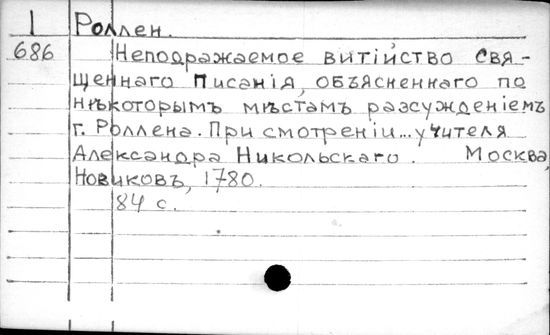 I Роллен.
686 Неподражаемое витійство свя-
щеннаго Писанія, объясненнаго по
нѣкоторымъ мѣстамъ разсужденіемъ
г. Роллена. При смотреніи... учителя
Александра Никольскаго. Москва,
Новиковъ, 1780.
84 с.